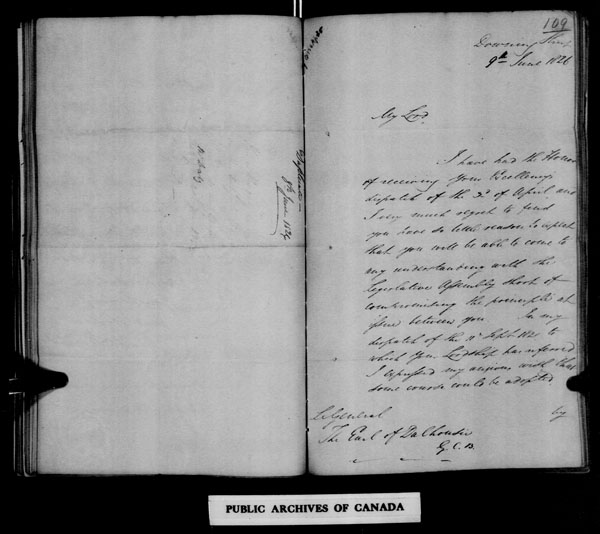 109
Downing Street
9th June 1826
My Lord
I have had the Honor
of receiving Your Excellency's
dispatch of the 3d of April and
I very much regret to find
you have so little reason to expect
that you will be able to come to
any understanding with the
Legislative Assembly short of
compromising the principle at
issue between you In my
dispatch of the Sept. to
which Your Lordship has referred
I expressed my anxious wish that
some course could be adopted
by
Lt General
The Earl of Dalhousie
G.C.B.
9th June 1826
PUBLIC ARCHIVES OF CANADA